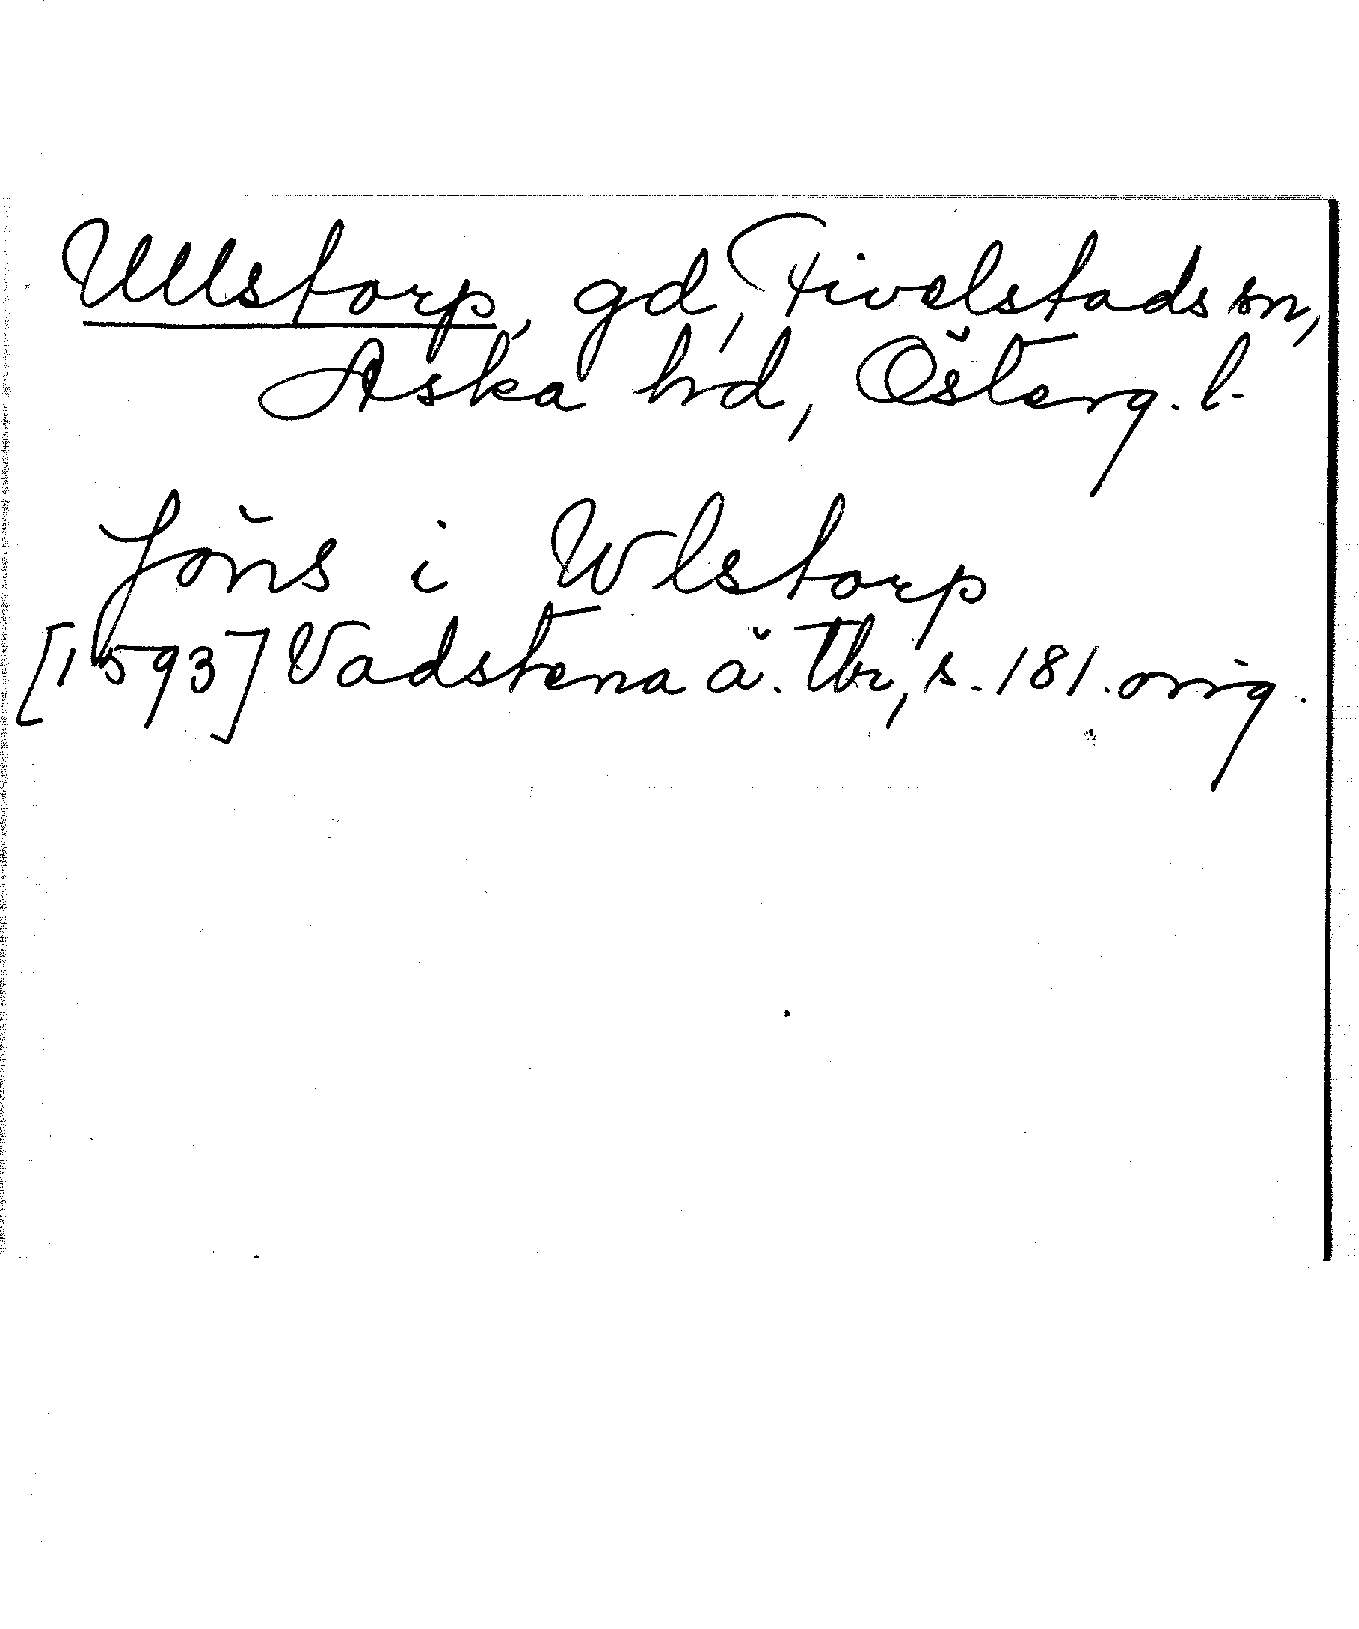 Ullstorp, gd, Fivelstads sn,
Aska hd, Österg. l.
Jöns i Wlstorp
[1593] Vadstena ä. Tbr, s. 181. orig.